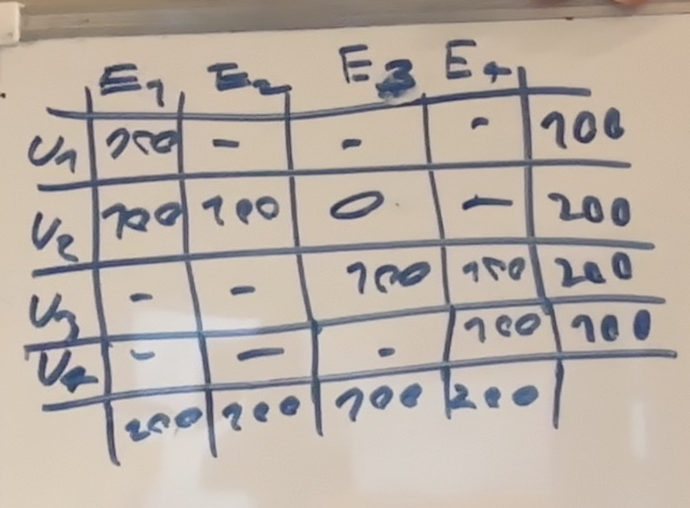 E1 E2 E3 E4
U1 100 - - - 100
U2 100 100 0 - 200
U3 - - 100 100 200
U4 - - - 100 100
200 100 100 200